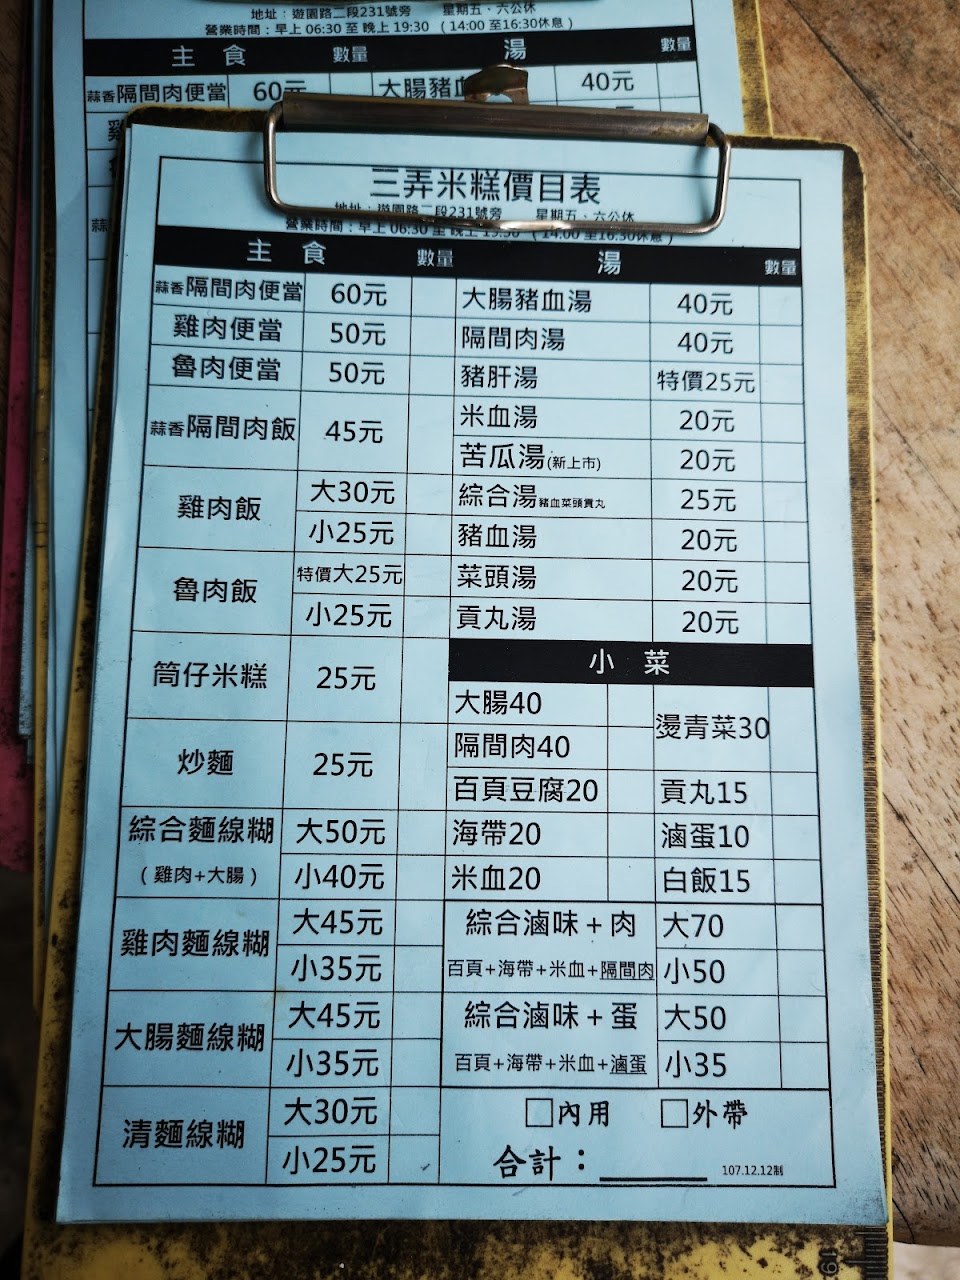 地址：遊園路二段231號旁 星期五、六公休
營業時間：早上 06:30 至 晚上 19:30 （14:00 至16:30休息）
主 食 數量 湯 數量
蒜香隔間肉便當 60元 大腸豬血 40元
三弄米糕價目表
地址：遊園路二段231號旁 星期五、六公休
營業時間：早上 06:30 至 晚上 19:30 （14:00 至16:30休息）
主 食 數量 湯 數量
蒜香隔間肉便當 60元 大腸豬血湯 40元
雞肉便當 50元 隔間肉湯 40元
魯肉便當 50元 豬肝湯 特價25元
蒜香隔間肉飯 45元 米血湯 20元
苦瓜湯(新上市) 20元
雞肉飯 大30元 綜合湯豬血菜頭貢丸 25元
小25元 豬血湯 20元
魯肉飯 特價大25元 菜頭湯 20元
小25元 貢丸湯 20元
筒仔米糕 25元 小 菜
大腸40 燙青菜30
炒麵 25元 隔間肉40
百頁豆腐20 貢丸15
綜合麵線糊 大50元 海帶20 滷蛋10
（雞肉+大腸） 小40元 米血20 白飯15
雞肉麵線糊 大45元 綜合滷味＋肉 大70
小35元 百頁+海帶+米血+隔間肉 小50
大腸麵線糊 大45元 綜合滷味＋蛋 大50
小35元 百頁+海帶+米血+滷蛋 小35
清麵線糊 大30元 □內用 □外帶
小25元 合計：______ 107.12.12制